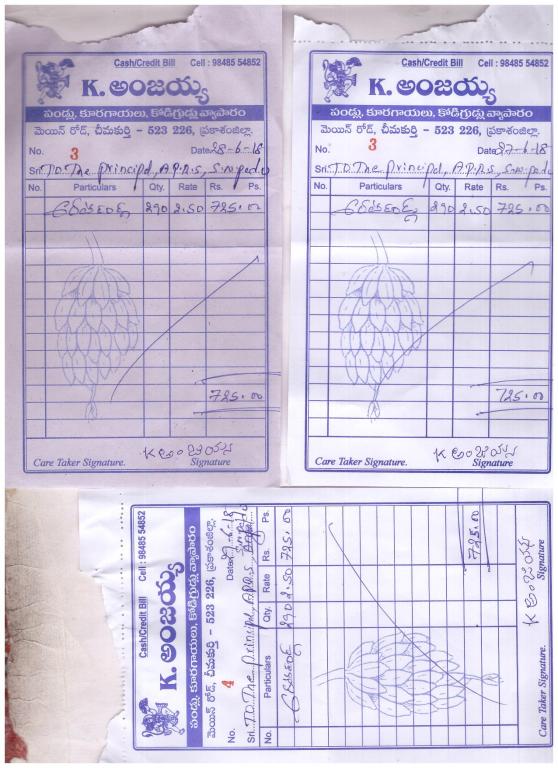 Cash/Credit Bill Cell : 98485 54852
K. అంజయ్య
పండ్లు, కూరగాయలు, కోడిగ్రుడ్లు వ్యాపారం
మెయిన్ రోడ్, చీమకుర్తి - 523 226, ప్రకాశంజిల్లా.
No. 3 Date 28-6-18
Sri. T.O. The principal, A.P.R.S,
No. Particulars Qty. Rate Rs. Ps.
290 2.50 725.00
725.00
K అంజయ్య
Care Taker Signature. Signature
Cash/Credit Bill Cell : 98485 54852
K. అంజయ్య
పండ్లు, కూరగాయలు, కోడిగ్రుడ్లు వ్యాపారం
మెయిన్ రోడ్, చీమకుర్తి - 523 226, ప్రకాశంజిల్లా.
No. 3 Date 27-6-18
Sri. T.O. The principal, A.P.R.S,
No. Particulars Qty. Rate Rs. Ps.
290 2.50 725.00
725.00
K అంజయ్య
Care Taker Signature. Signature
Cash/Credit Bill Cell : 98485 54852
K. అంజయ్య
పండ్లు, కూరగాయలు, కోడిగ్రుడ్లు వ్యాపారం
మెయిన్ రోడ్, చీమకుర్తి - 523 226, ప్రకాశంజిల్లా.
No. 4 Date
Sri. T.O. The principal, A.P.R.S,
No. Particulars Qty. Rate Rs. Ps.
290 2.50 725.00
725.00
K అంజయ్య
Care Taker Signature. Signature